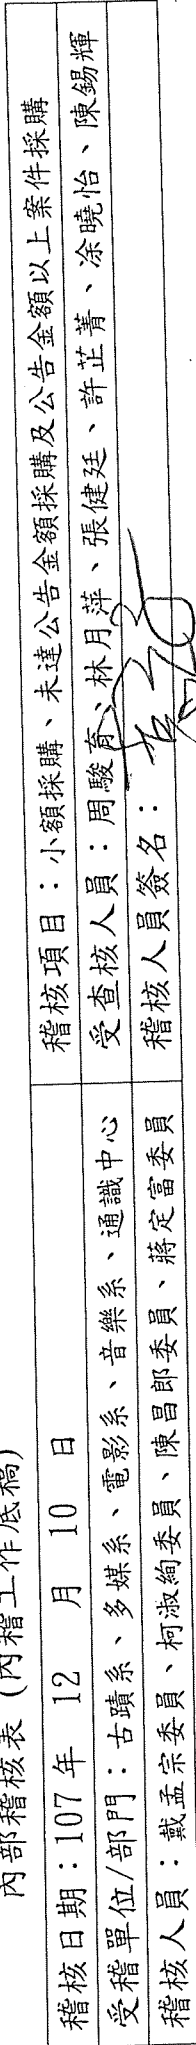 內部稽核表 (內稽工作底稿)
稽核日期：107 年 12 月 10 日
稽核項目：小額採購、未達公告金額採購及公告金額以上案件採購
受稽單位/部門：古蹟系、多媒系、電影系、音樂系、通識中心
受查核人員：周駿育、林月萍、張健廷、許芷菁、涂曉怡、陳錫輝
稽核人員：戴孟宗委員、柯淑絢委員、陳昌郎委員、蔣定富委員
稽核人員簽名：